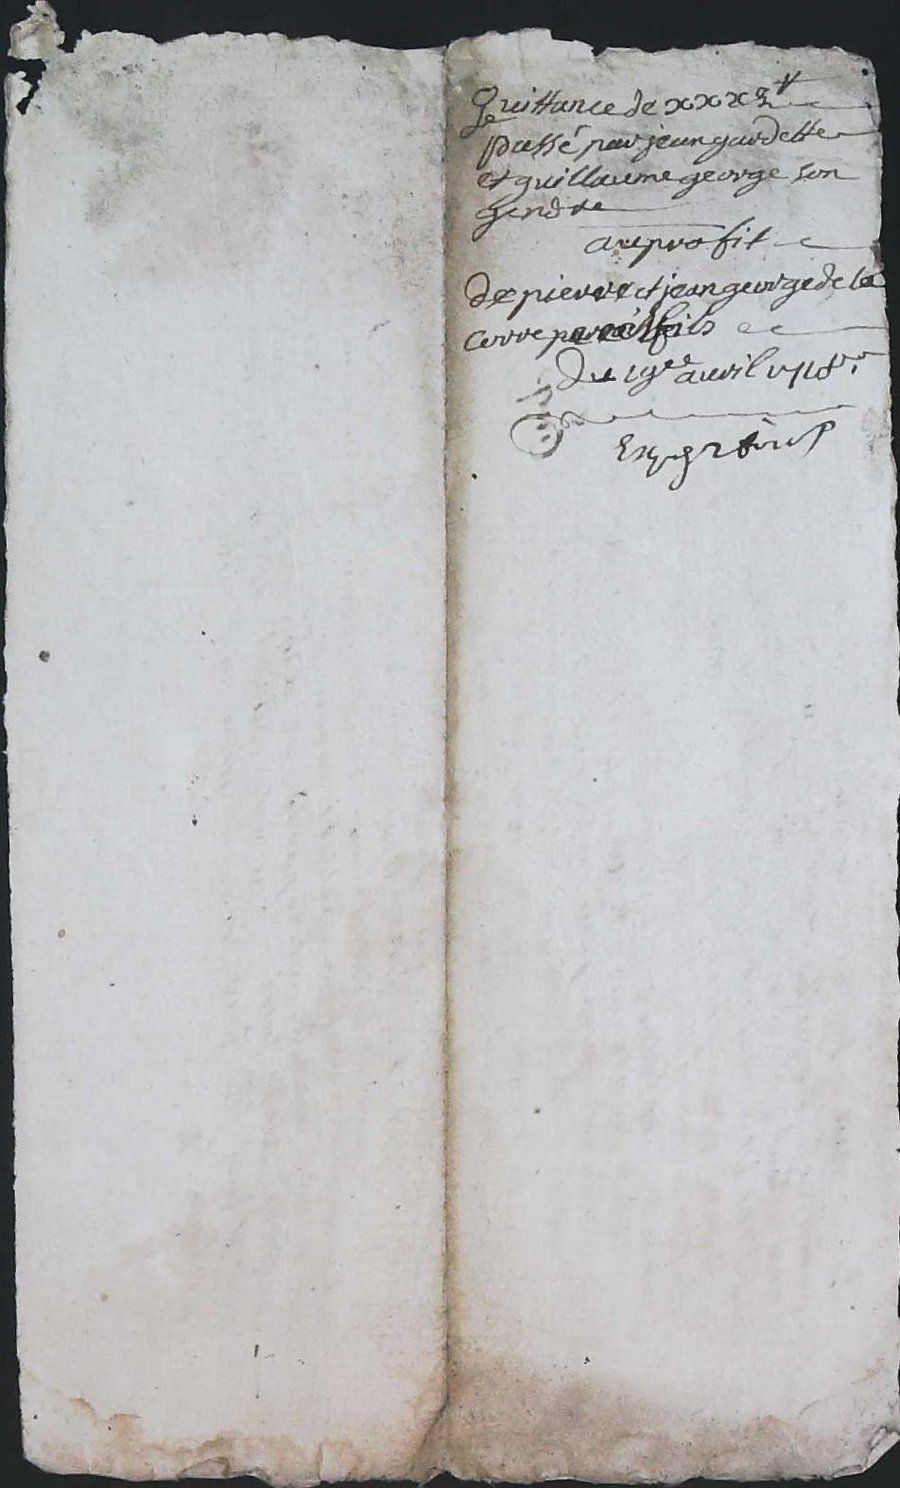 Quittance de xxx tt
passé par jean gardette
et guillaume george son
gendre
au profit
de pierre et jean george de la
Corre fils
Du 19ee avril 1718